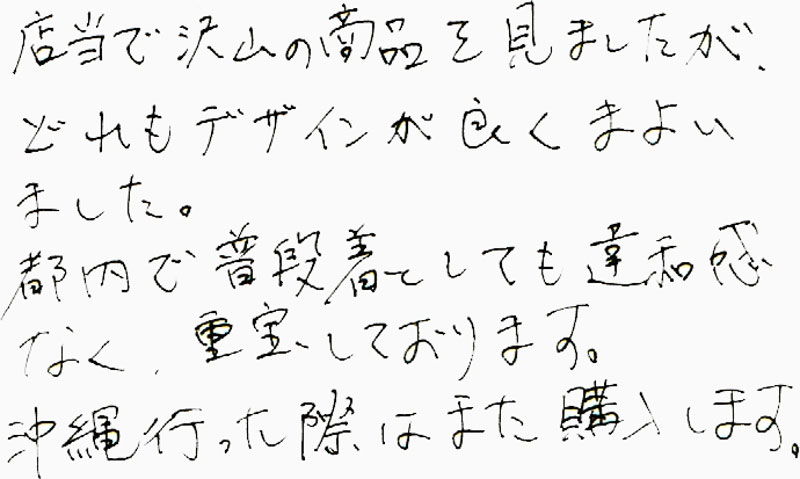 店当で沢山の商品を見ましたが、
どれもデザインが良くまよい
ました。
都内で普段着としても違和感
なく、重宝しております。
沖縄行った際はまた購入します。